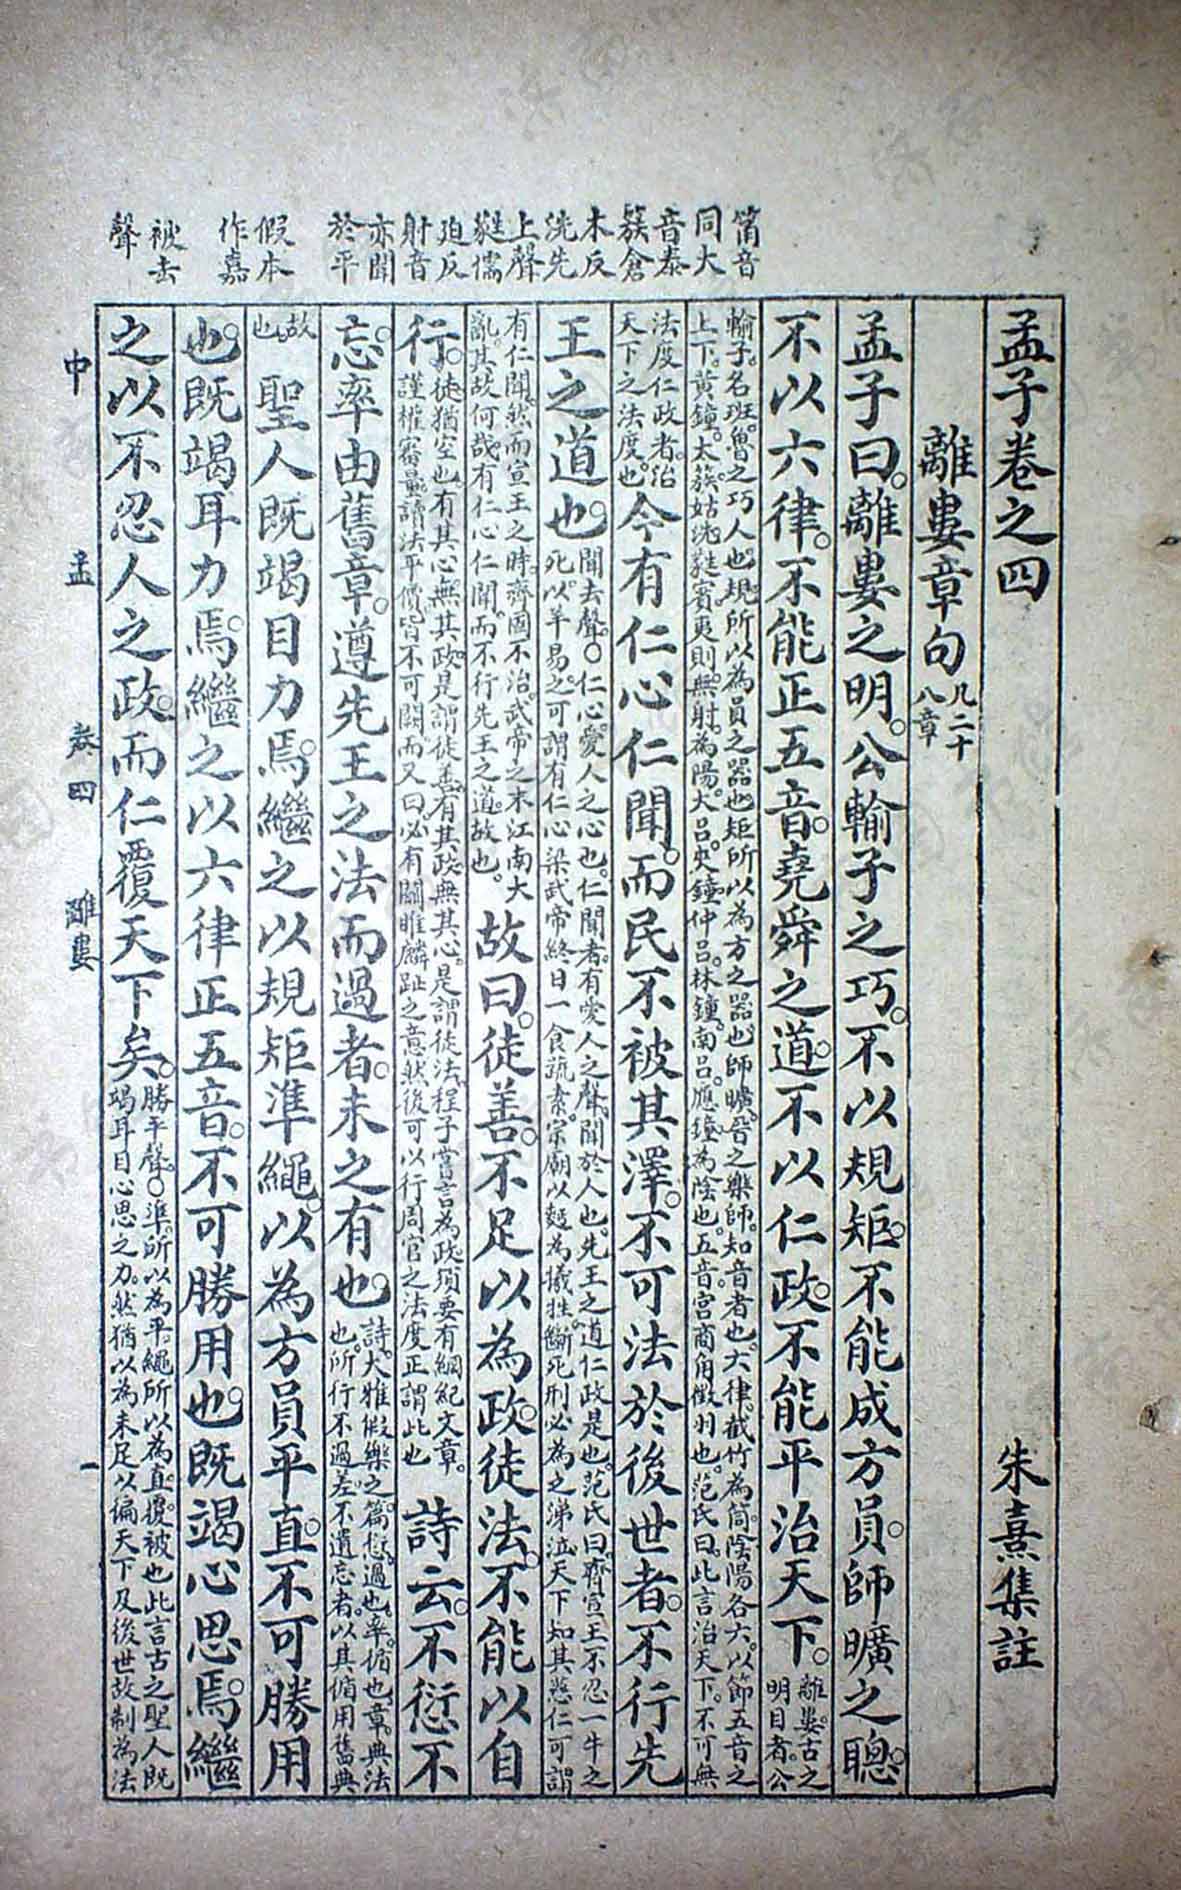 筩音
同大
音泰
簇倉
木反
洗先
上聲
蕤儒
追反
射音
亦聞
於平
假本
作嘉
被去
聲
孟子卷之四 朱熹集註
離婁章句
凡二十
八章
孟子曰。離婁之明。公輸子之巧。不以規矩。不能成方員。師曠之聰。
不以六律。不能正五音。堯舜之道。不以仁政。不能平治天下。
離婁。古之
明目者。公
輸子。名班。魯之巧人也。規。所以為員之器也。矩。所以為方之器也。師曠。晉之樂師。知音者也。六律。截竹為筒。陰陽各六。以節五音之
上下。黃鐘。太簇。姑洗。蕤賓。夷則。無射。為陽。大呂。夾鐘。仲呂。林鐘。南呂。應鐘。為陰也。五音。宮商角徵羽也。范氏曰。此言治天下。不可無
法度。仁政者。治
天下之法度也。
今有仁心仁聞。而民不被其澤。不可法於後世者。不行先
王之道也。
聞去聲。○仁心。愛人之心也。仁聞者。有愛人之聲。聞於人也。先王之道。仁政是也。范氏曰。齊宣王不忍一牛之
死。以羊易之。可謂有仁心。梁武帝終日一食蔬素。宗廟以麪為犧牲。斷死刑必為之涕泣。天下知其慈仁。可謂
有仁聞。然而宣王之時。齊國不治。武帝之末。江南大
亂。其故何哉。有仁心仁聞。而不行先王之道故也。
故曰。徒善。不足以為政。徒法。不能以自
行。
徒猶空也。有其心。無其政。是謂徒善。有其政。無其心。是謂徒法。程子嘗言為政須要有綱紀文章。
謹權審量。讀法平價。皆不可闕。而又曰。必有關雎麟趾之意。然後可以行周官之法度。正謂此也
詩云。不愆不
忘。率由舊章。遵先王之法而過者。未之有也。
詩大雅假樂之篇。愆。過也。率。循也。章。典法
也。所行不過差不遺忘者。以其循用舊典
故
也。
聖人既竭目力焉。繼之以規矩準繩。以為方員平直。不可勝用
也。既竭耳力焉。繼之以六律正五音。不可勝用也。既竭心思焉。繼
之以不忍人之政。而仁覆天下矣。
勝平聲。○準。所以為平。繩所以為直。覆。被也。此言古之聖人既
竭耳目心思之力。然猶以為未足以徧天下及後世。故制為法
中 孟 卷四 離婁 一